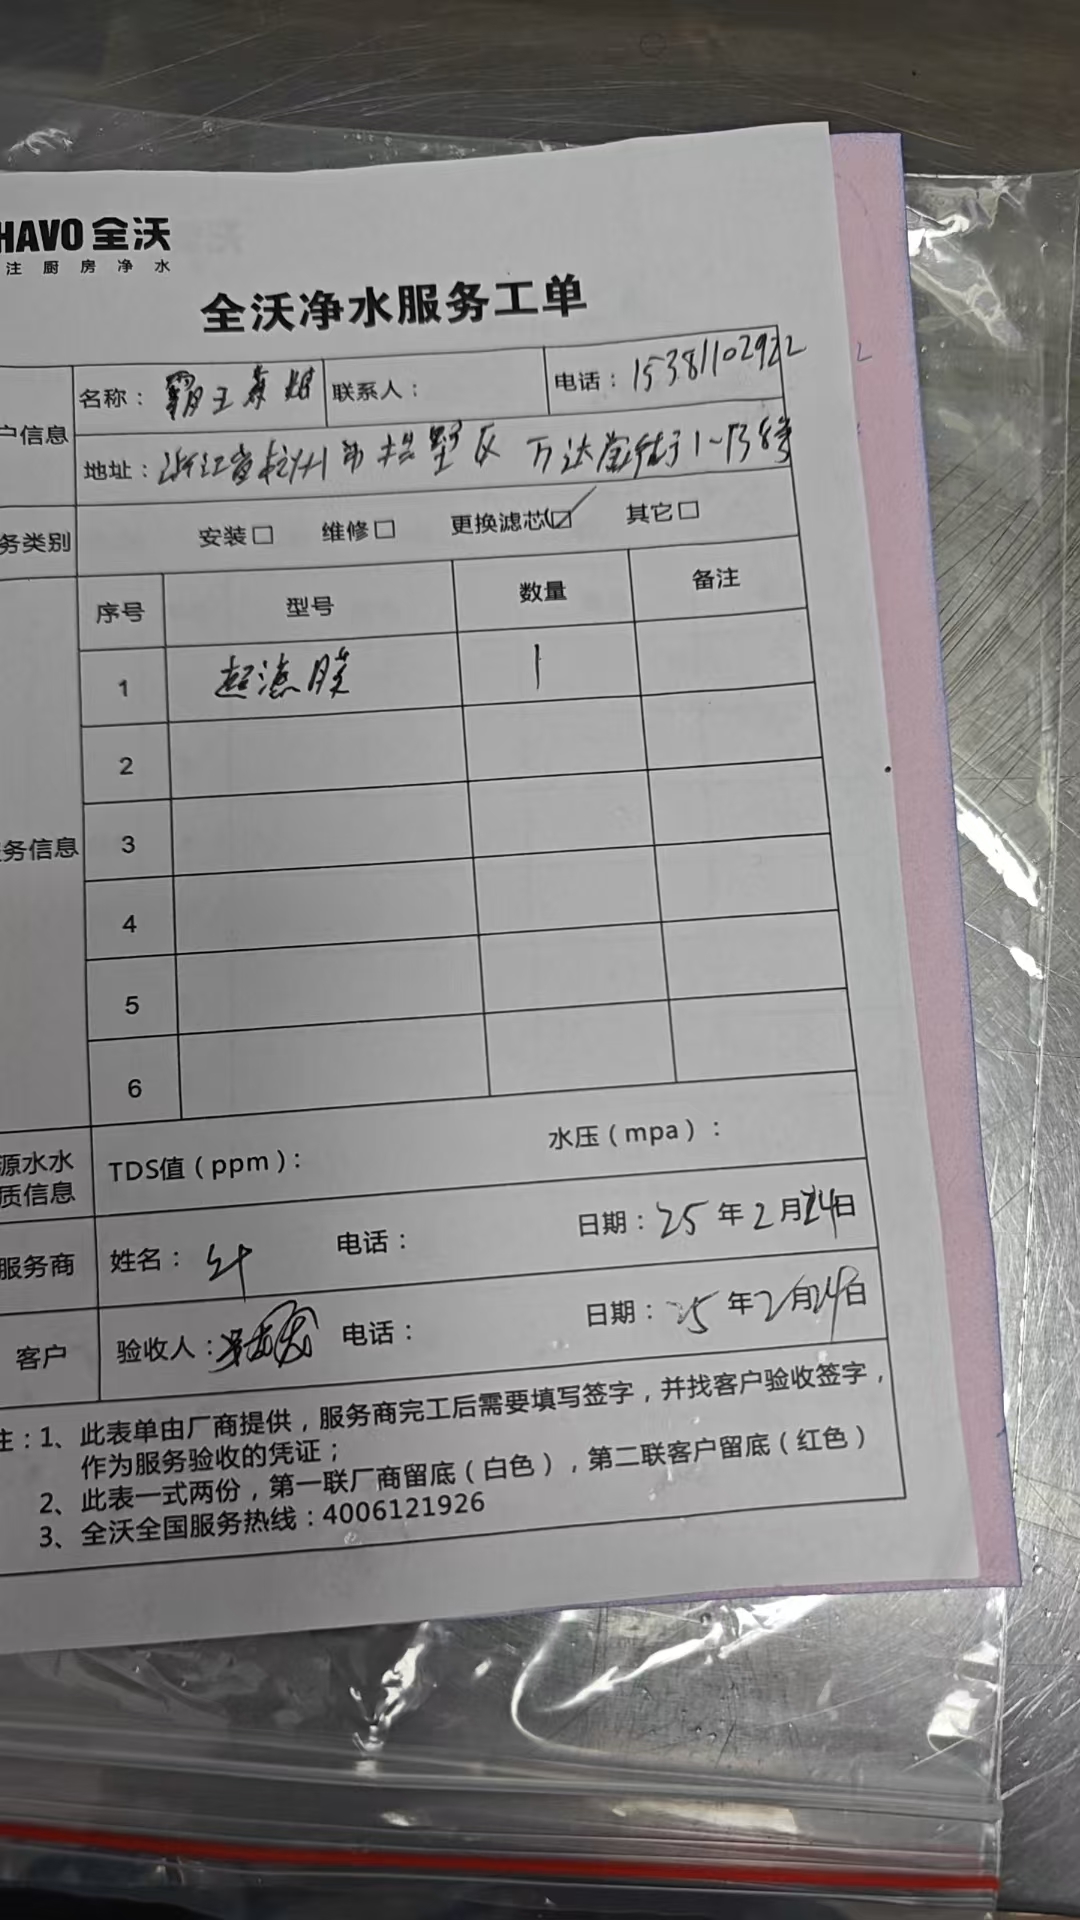 HAVO 全沃
注厨房净水
全沃净水服务工单
户信息
名称：霸王茶姬 联系人： 电话：15381102922
地址：浙江省杭州市拱墅区 万达金街1-138号
务类别 安装□ 维修□ 更换滤芯☑ 其它□
序号 型号 数量 备注
1 超滤膜 1
2
3
务信息
4
5
6
源水水质信息
TDS值（ppm）： 水压（mpa）：
服务商 姓名： 电话： 日期：25年2月24日
客户 验收人： 电话： 日期：25年2月24日
注：1、此表单由厂商提供，服务商完工后需要填写签字，并找客户验收签字，
作为服务验收的凭证；
2、此表一式两份，第一联厂商留底（白色），第二联客户留底（红色）
3、全沃全国服务热线：4006121926